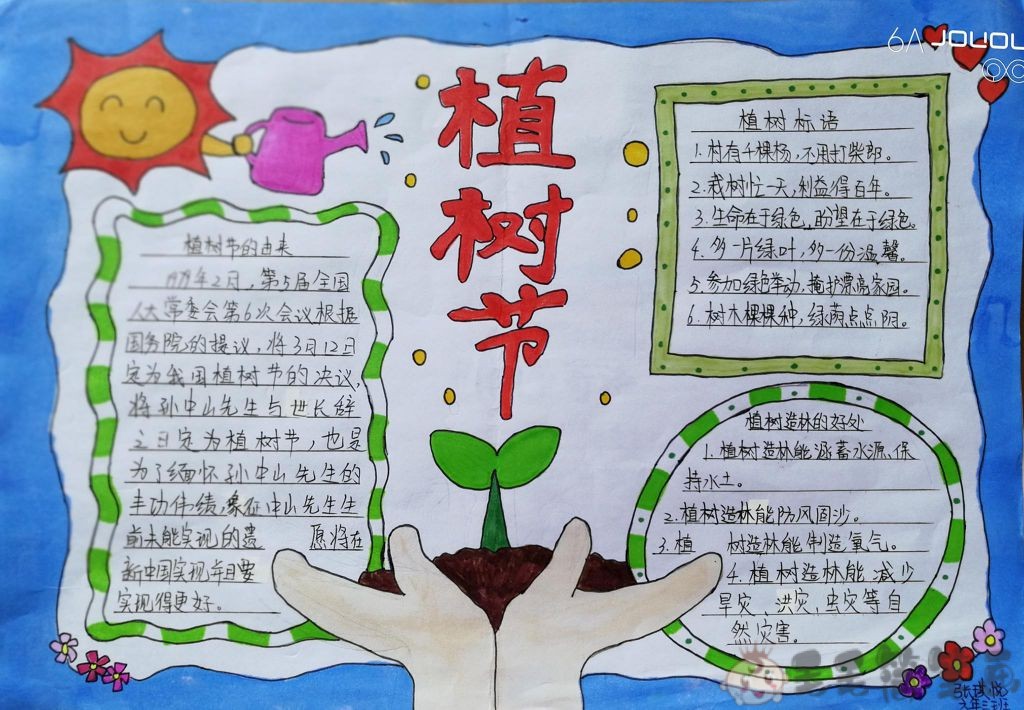 植树节
植树节的由来
1979年2月，第5届全国
人大常委会第6次会议根据
国务院的提议，将3月12日
定为我国植树节的决议，
将孙中山先生与世长辞
之日定为植树节，也是
为了缅怀孙中山先生的
丰功伟绩，象征中山先生生
前未能实现的遗 愿将在
新中国实现并且要
实现得更好。
植树标语
1.村有千棵杨，不用打柴郎。
2.栽树忙一天，利益得百年。
3.生命在于绿色，盼望在于绿色。
4.多一片绿叶，多一份温馨。
5.参加绿色举动，掩护漂亮家园。
6.树木棵棵种，绿荫点点阴。
植树造林的好处
1.植树造林能涵蓄水源，保
持水土。
2.植树造林能防风固沙。
3.植 树造林能制造氧气。
4.植树造林能减少
旱灾、洪灾、虫灾等自
然灾害。
六年三班